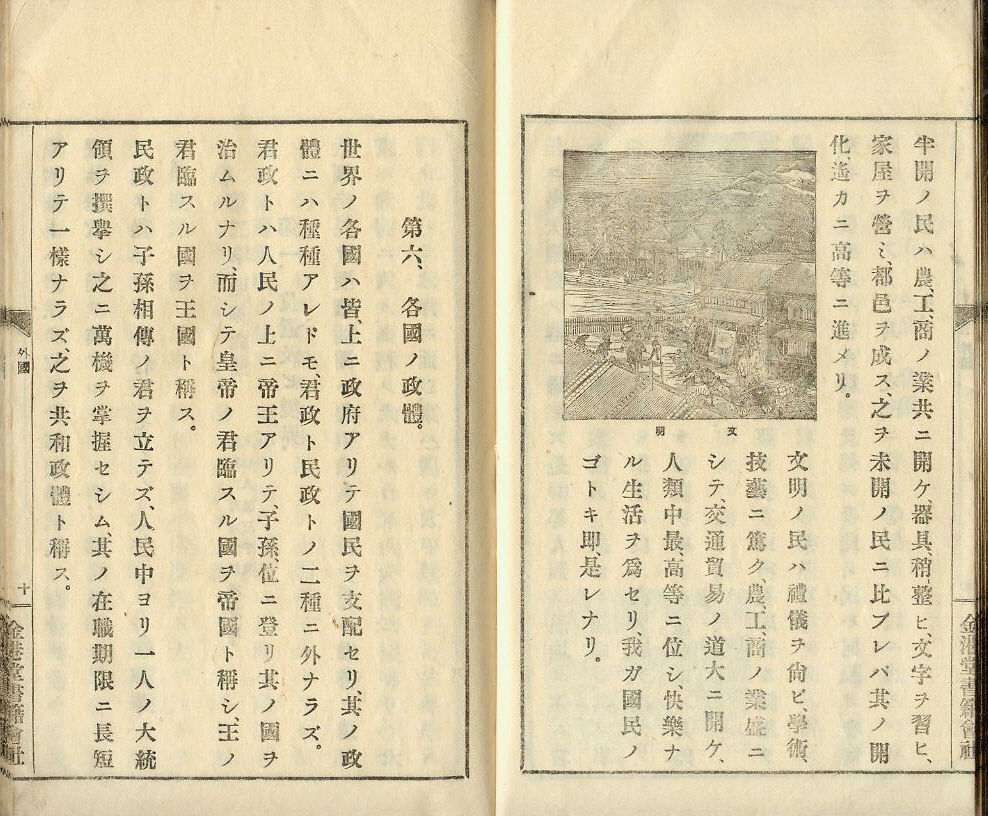 半開ノ民ハ、農、工、商ノ業共ニ開ケ、器具、稍整ヒ、文字ヲ習ヒ、
家屋ヲ營ミ、都邑ヲ成ス、之ヲ未開ノ民ニ比ブレバ其ノ開
化、遙カニ高等ニ進メリ。
文明
文明ノ民ハ禮儀ヲ尙ビ、學術、
技藝ニ篤ク、農、工、商ノ業盛ニ
シテ、交通貿易ノ道大ニ開ケ、
人類中最、高等ニ位シ、快樂ナ
ル生活ヲ爲セリ、我ガ國民ノ
ゴトキ即、是レナリ。
金港堂書籍會社
第六、各國ノ政體。
世界ノ各國ハ皆、上ニ政府アリテ國民ヲ支配セリ、其ノ政
體ニハ種種アレドモ、君政ト民政トノ二種ニ外ナラズ。
君政トハ人民ノ上ニ帝王アリテ、子孫位ニ登リ其ノ國ヲ
治ムルナリ、而シテ皇帝ノ君臨スル國ヲ帝國ト稱シ、王ノ
君臨スル國ヲ王國ト稱ス。
民政トハ子孫相傳ノ君ヲ立テズ、人民中ヨリ一人ノ大統
領ヲ撰擧シ之ニ萬機ヲ掌握セシム、其ノ在職期限ニ長短
アリテ一樣ナラズ、之ヲ共和政體ト稱ス。
外國
十
金港堂書籍會社